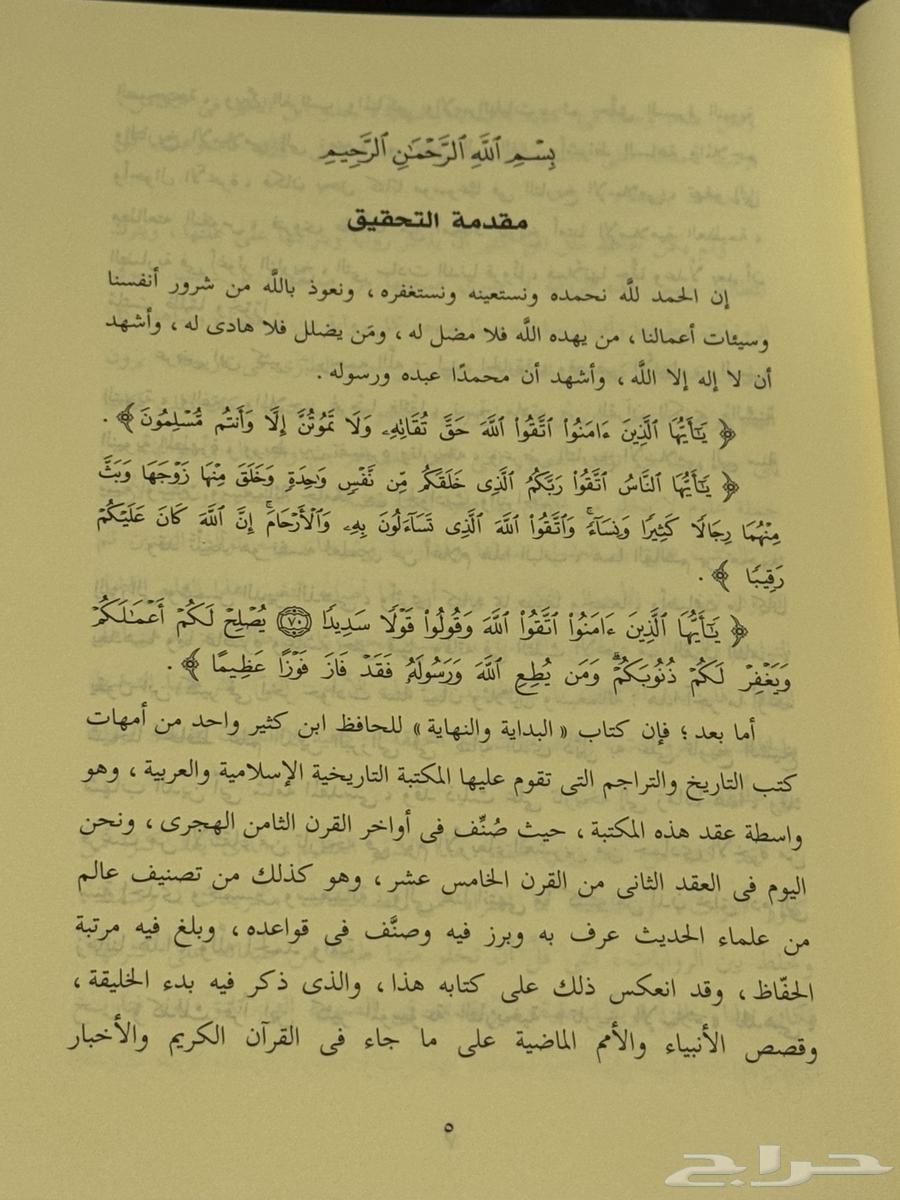 بِسْمِ ٱللَّهِ ٱلرَّحْمَٰنِ ٱلرَّحِيمِ
مقدمة التحقيق
إن الحمد للَّه نحمده ونستعينه ونستغفره ، ونعوذ باللَّه من شرور أنفسنا
وسيئات أعمالنا ، من يهده اللَّه فلا مضل له ، ومَن يضلل فلا هادى له ، وأشهد
أن لا إله إلا اللَّه ، وأشهد أن محمدًا عبده ورسوله .
﴿ يَٰٓأَيُّهَا ٱلَّذِينَ ءَامَنُوا۟ ٱتَّقُوا۟ ٱللَّهَ حَقَّ تُقَاتِهِۦ وَلَا تَمُوتُنَّ إِلَّا وَأَنتُم مُّسْلِمُونَ ﴾ .
﴿ يَٰٓأَيُّهَا ٱلنَّاسُ ٱتَّقُوا۟ رَبَّكُمُ ٱلَّذِى خَلَقَكُم مِّن نَّفْسٍ وَٰحِدَةٍ وَخَلَقَ مِنْهَا زَوْجَهَا وَبَثَّ
مِنْهُمَا رِجَالًا كَثِيرًا وَنِسَآءً ۚ وَٱتَّقُوا۟ ٱللَّهَ ٱلَّذِى تَسَآءَلُونَ بِهِۦ وَٱلْأَرْحَامَ ۚ إِنَّ ٱللَّهَ كَانَ عَلَيْكُمْ
رَقِيبًا ﴾ .
﴿ يَٰٓأَيُّهَا ٱلَّذِينَ ءَامَنُوا۟ ٱتَّقُوا۟ ٱللَّهَ وَقُولُوا۟ قَوْلًا سَدِيدًا ۝٧٠ يُصْلِحْ لَكُمْ أَعْمَٰلَكُمْ
وَيَغْفِرْ لَكُمْ ذُنُوبَكُمْ ۗ وَمَن يُطِعِ ٱللَّهَ وَرَسُولَهُۥ فَقَدْ فَازَ فَوْزًا عَظِيمًا ﴾ .
أما بعد ؛ فإن كتاب « البداية والنهاية » للحافظ ابن كثير واحد من أمهات
كتب التاريخ والتراجم التى تقوم عليها المكتبة التاريخية الإسلامية والعربية ، وهو
واسطة عقد هذه المكتبة ، حيث صُنِّف فى أواخر القرن الثامن الهجرى ، ونحن
اليوم فى العقد الثانى من القرن الخامس عشر ، وهو كذلك من تصنيف عالم
من علماء الحديث عرف به وبرز فيه وصنَّف فى قواعده ، وبلغ فيه مرتبة
الحفّاظ ، وقد انعكس ذلك على كتابه هذا ، والذى ذكر فيه بدء الخليقة ،
وقصص الأنبياء والأمم الماضية على ما جاء فى القرآن الكريم والأخبار
٥
حراج